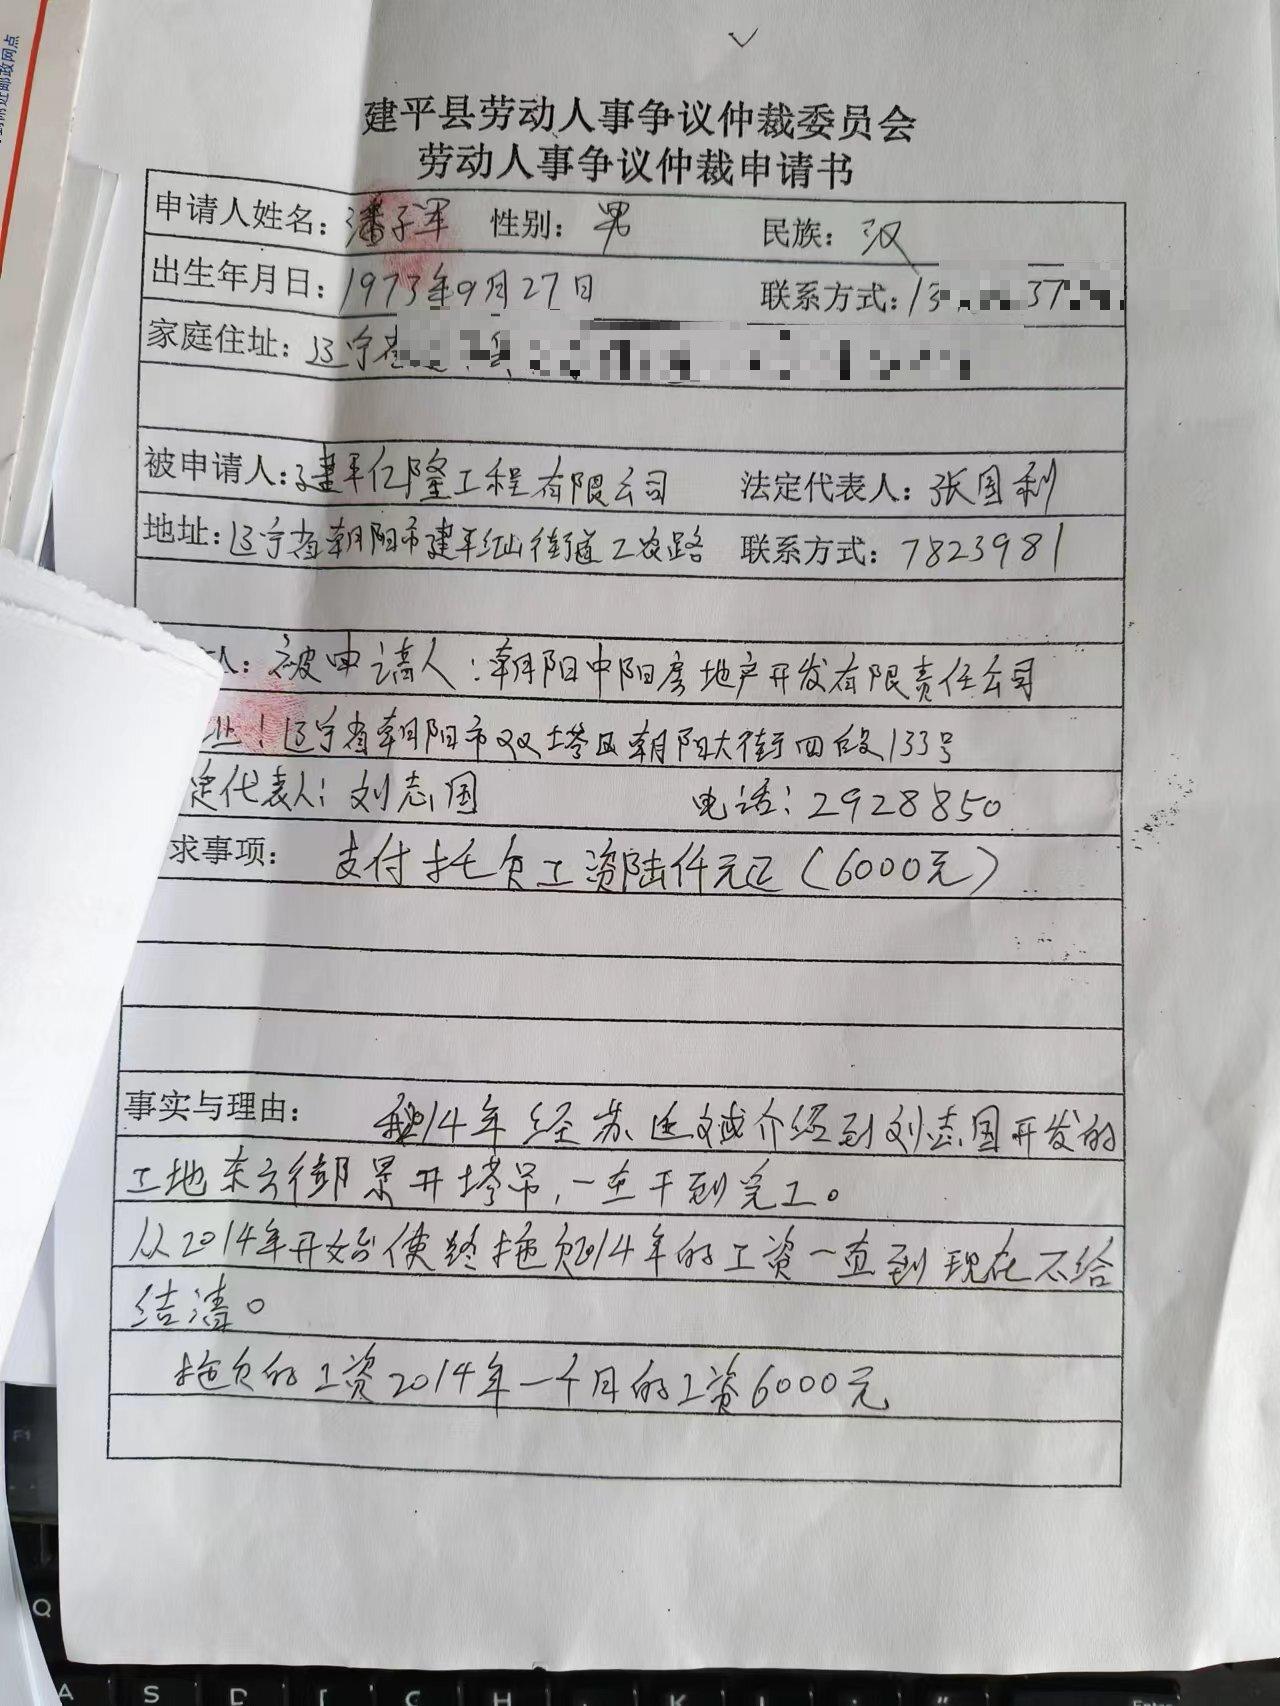 建平县劳动人事争议仲裁委员会
劳动人事争议仲裁申请书
申请人姓名：潘子军 性别：男 民族：汉
出生年月日：1973年9月27日 联系方式：13 37
家庭住址：辽宁省
被申请人：建平亿隆工程有限公司 法定代表人：张国利
地址：辽宁省朝阳市建平红山街道工农路 联系方式：7823981
人：被申请人：朝阳中阳房地产开发有限责任公司
址：辽宁省朝阳市双塔区朝阳大街四段133号
定代表人：刘志国 电话：2928850
求事项： 支付托欠工资陆仟元正（6000元）
事实与理由： 我14年经苏 介绍到刘志国开发的
工地东方御景开塔吊，一直干到完工。
从2014年开始使终拖欠2014年的工资一直到现在不给
结清。
拖欠的工资2014年一个月的工资6000元
F1
Q
A S D C H K L Enter